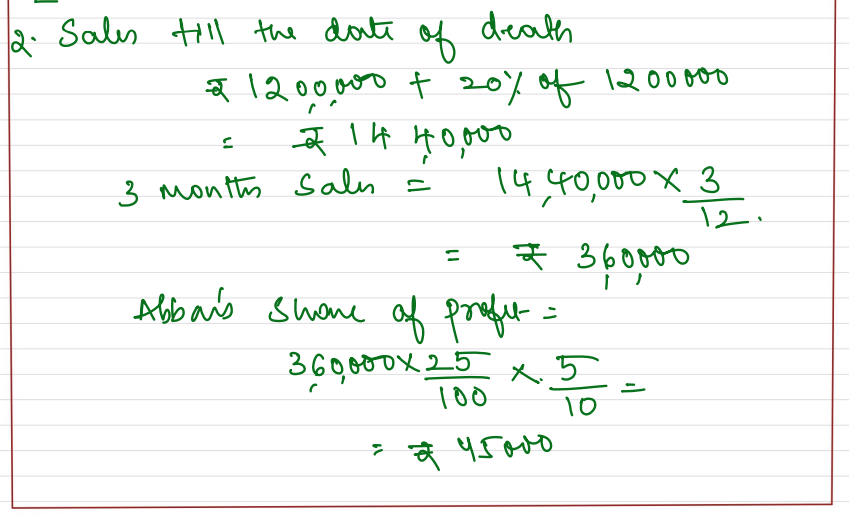 2. Sales till the date of death
₹ 12,00,000 + 20% of 1200000
= ₹ 14,40,000
3 months Sales = 14,40,000 × 3/12.
= ₹ 3,60,000
Abbai's Share of profit =
3,60,000 × 25/100 × 5/10 =
= ₹ 45000